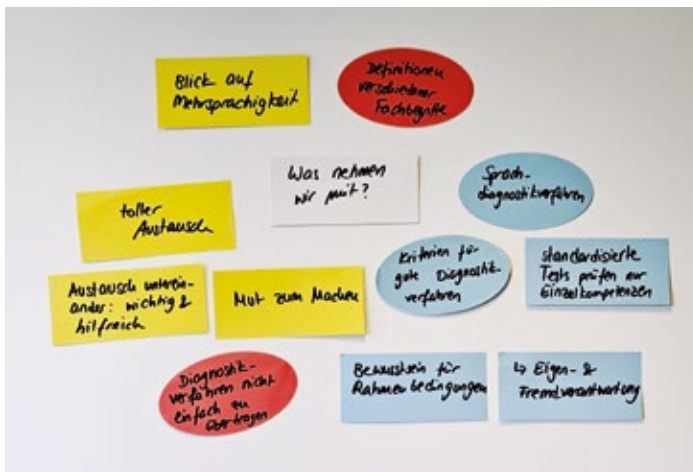 Blick auf
Mehrsprachigkeit
Definitionen
verschiedener
Fachbegriffe
Was nehmen
wir mit?
Sprach-
diagnostikverfahren
toller
Austausch
Kriterien für
gute Diagnostik-
verfahren
standardisierte
Tests prüfen nur
Einzelkompetenzen
Austausch unterein-
ander: wichtig &
hilfreich
Mut zum Machen
Diagnostik-
verfahren nicht
einfach zu
übertragen
Bewusstsein für
Rahmenbedingungen
↳ Eigen- &
Fremdverantwortung